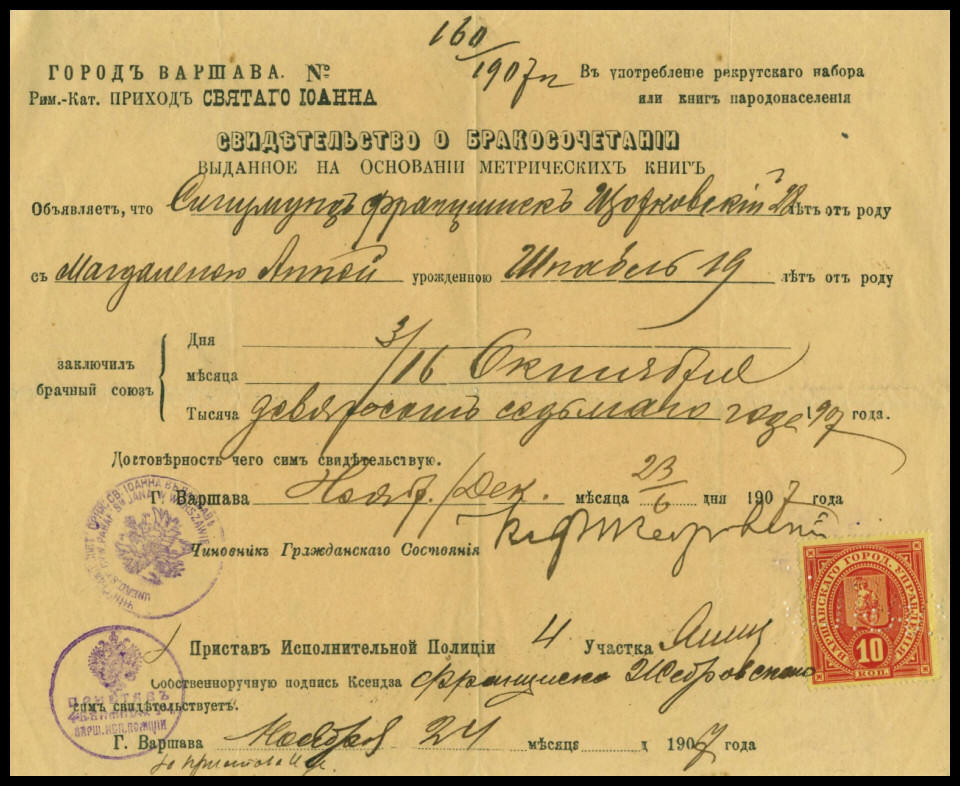 160/1907 г
ГОРОДЪ ВАРШАВА. №
Въ употребленіе рекрутскаго набора
Рим.-Кат. ПРИХОДЪ СВЯТАГО ІОАННА
или книгъ народонаселенія
СВИДѢТЕЛЬСТВО О БРАКОСОЧЕТАНІИ
ВЫДАННОЕ НА ОСНОВАНІИ МЕТРИЧЕСКИХЪ КНИГЪ
Объявляетъ, что Сигизмундъ Францишекъ 28 лѣтъ отъ роду
съ Магдаленою Анной урожденною Шнабель 19 лѣтъ отъ роду
заключилъ брачный союзъ
Дня 3/16
мѣсяца Октября
Тысяча девятьсотъ седьмаго года 1907 года.
Достовѣрность чего симъ свидѣтельствую.
Г. Варшава Нояб./Дек. мѣсяца 23/6 дня 1907 года
Чиновникъ Гражданскаго Состоянія
ВАРШАВСКАГО ГОРОД. УПРАВЛЕНІЯ
10
КОП.
Приставъ Исполнительной Полиціи 4 Участка
Собственноручную подпись Ксендза Франциска Жебровскаго
симъ свидѣтельствуетъ.
Г. Варшава Ноября 24 мѣсяца д 1907 года
ПРИСТАВЪ
ВАРШ. ИСП. ПОЛИЦІИ